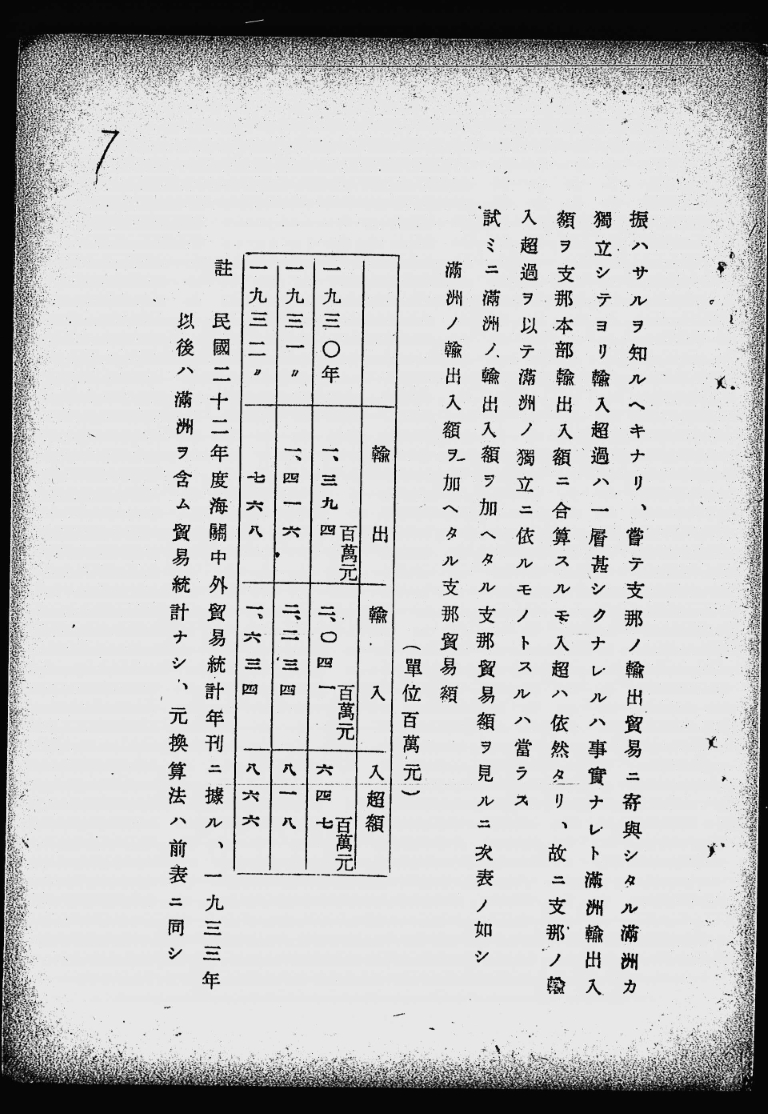 7
振ハサルヲ知ルヘキナリ、嘗テ支那ノ輸出貿易ニ寄與シタル滿洲カ
獨立シテヨリ輸入超過ハ一層甚シクナレルハ事實ナレト滿洲輸出入
額ヲ支那本部輸出入額ニ合算スルモ入超ハ依然タリ、故ニ支那ノ輸
入超過ヲ以テ滿洲ノ獨立ニ依ルモノトスルハ當ラス
試ミニ滿洲ノ輸出入額ヲ加ヘタル支那貿易額ヲ見ルニ次表ノ如シ
滿洲ノ輸出入額ヲ加ヘタル支那貿易額
(單位百萬元)
輸出 輸入 入超額
一九三〇年 一、三九四百萬元 二、〇四一百萬元 六四七百萬元
一九三一〃 一、四一六 二、二三四 八一八
一九三二〃 七六八 一、六三四 八六六
註 民國二十二年度海關中外貿易統計年刊ニ據ル、一九三三年
以後ハ滿洲ヲ含ム貿易統計ナシ、元換算法ハ前表ニ同シ